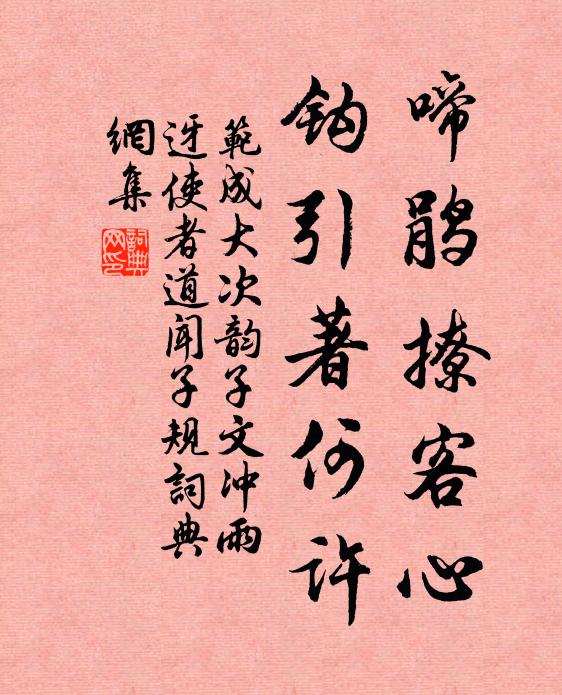 啼鹃撩客心
钩引著何许
範成大次韵子文冲雨
迓使者道闻子规詞典
網集
詞典
网印